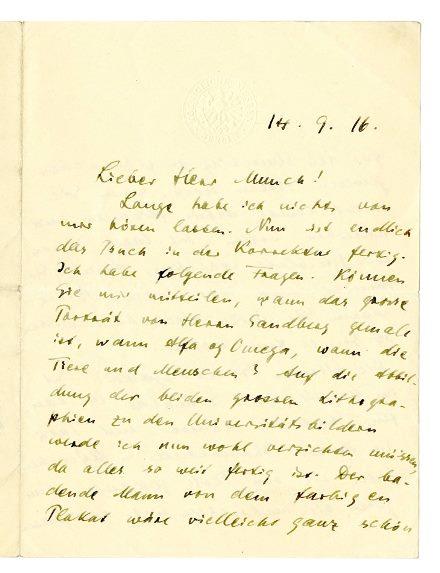 14. 9. 16.
Lieber Herr Munch!
Lange habe ich nichts von
mir hören lassen. Nun ist endlich
das Buch in der Korrektur fertig.
Ich habe folgende Fragen. Können
Sie mir mitteilen, wann das grosse
Porträt von Herrn Sandberg gemalt
ist, wann Alfa og Omega, wann die
Tiere und Menschen? Auf die Abbil-
dung der beiden grossen Lithogra-
phien zu den Universitätsbildern
werde ich nun wohl verzichten müssen,
da alles so weit fertig ist. Der ba-
dende Mann von dem farbigen
Plakat wäre vielleicht ganz schön